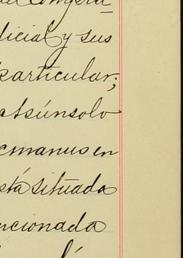 dicial y sus
particular;
at súnsolo
rmanus en
stá situada
ncionada